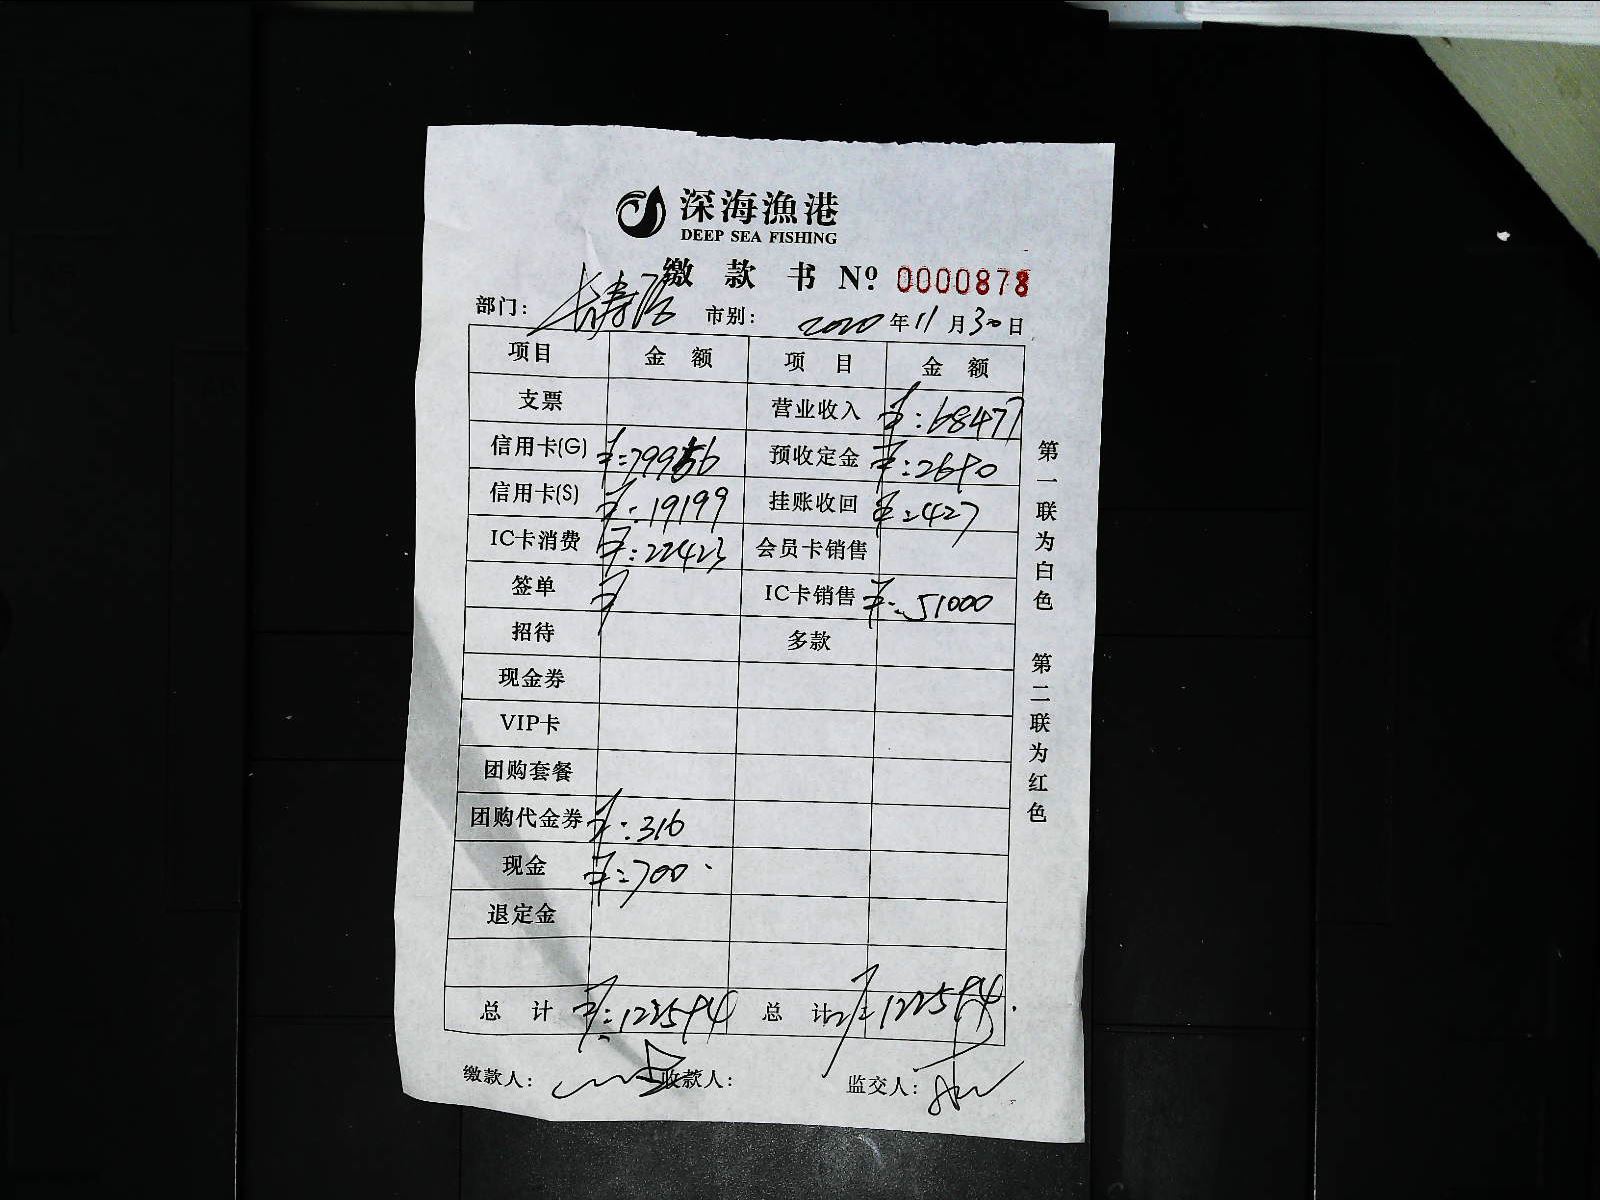 深海漁港
DEEP SEA FISHING
缴款书 Nº 0000878
部门: 长寿路 市别: 2020年11月30日
项目 金额 项目 金额
支票 营业收入 ¥:68477
信用卡(G) ¥:79956 预收定金 ¥:2690
信用卡(S) ¥:19199 挂账收回 ¥:427
IC卡消费 ¥:22423 会员卡销售
签单 ¥ IC卡销售 ¥:51000
招待 多款
现金券
VIP卡
团购套餐
团购代金券 ¥:316
现金 ¥:700
退定金
总计 ¥:122594 总计 ¥:122594
缴款人: 收款人: 监交人:
第一联为白色 第二联为红色